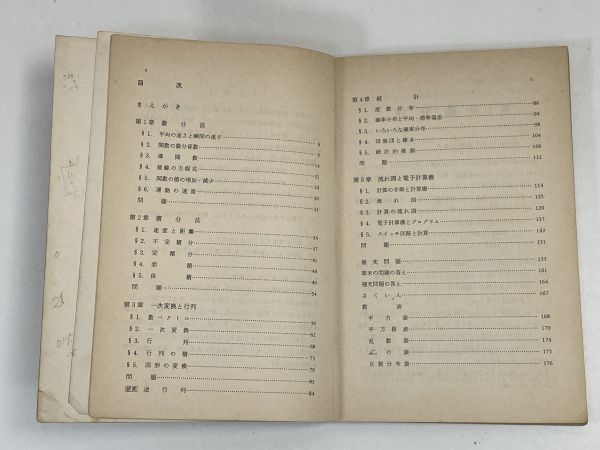 4
目　次
まえがき
第1章 微分法
§1. 平均の速さと瞬間の速さ 6
§2. 関数の微分係数 9
§3. 導関数 14
§4. 接線の方程式 21
§5. 関数の値の増加・減少 25
§6. 運動の速度 30
問題 32
第2章 積分法
§1. 速度と距離 34
§2. 不定積分 37
§3. 定積分 41
§4. 面積 44
§5. 体積 49
問題 54
第3章 一次変換と行列
§1. 数ベクトル 56
§2. 一次変換 62
§3. 行列 68
§4. 行列の積 73
§5. 図形の変換 79
問題 83
逆行列 84
3
第4章 統計
§1. 度数分布 86
§2. 確率分布と平均・標準偏差 94
§3. いろいろな確率分布 98
§4. 母集団と標本 104
§5. 統計的推測 106
問題 112
第5章 流れ図と電子計算機
§1. 計算の手順と計算機 114
§2. 流れ図 125
§3. 計算の流れ図 129
§4. 電子計算機とプログラム 137
§5. スイッチ回路と計算 142
問題 151
補充問題 151
章末の問題の答え 161
補充問題の答え 164
さくいん 167
数表
平方表 168
平方根表 170
乱数表 174
nCrの表 175
正規分布表 176